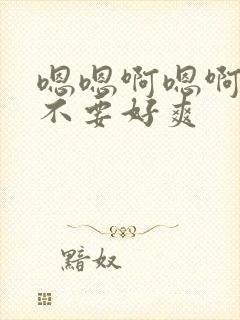 嗯嗯啊嗯啊
不要好爽
黯奴